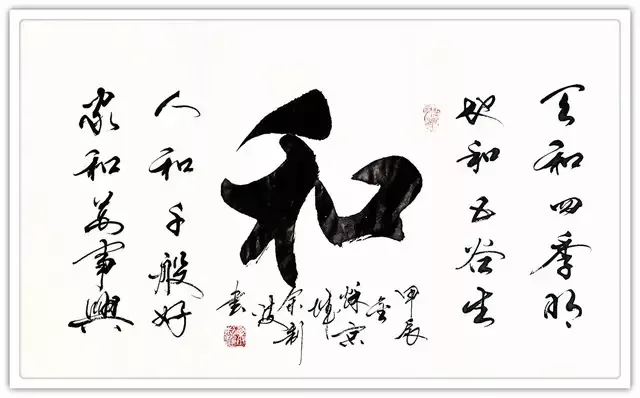 天和四季明
地和五谷生
和
人和千般好
家和萬事興
甲辰
金
秋京
城
余新
波
书